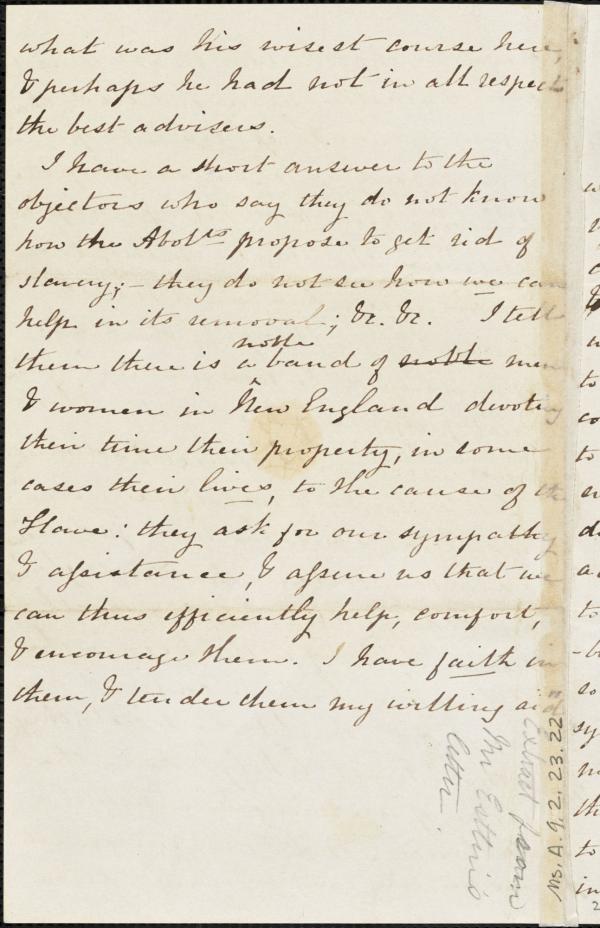 what was his wisest course here,
& perhaps he had not in all respects
the best advisers.
I have a short answer to the
objectors who say they do not know
how the Abolts propose to get rid of
slavery; – they do not see how we can
help in its removal; &c. &c. I tell
noble
them there is a band of noble men
& women in New England devoting
their time their property, in some
cases their lives, to the cause of the
Slave: they ask for our sympathy
& assistance, & assure us that we
can thus efficiently help, comfort,
& encourage them. I have faith in
them, & tender them my willing aid"
Extract from
Mr Estlin's
letter.
Ms. A. 9. 2. 23. 22
to
co
to
to
so
sy
th
to
in
2